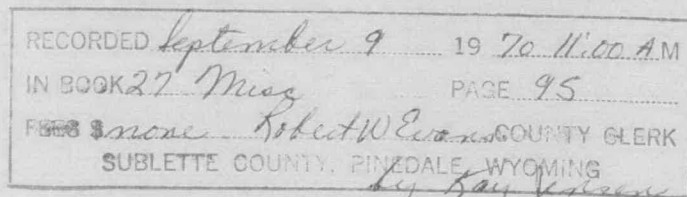 RECORDED September 9 1970 11:00 A M
IN BOOK 27 Misc PAGE 95
FEES $ none Robert W Evans COUNTY CLERK
SUBLETTE COUNTY, PINEDALE, WYOMING
by Kay Jensen